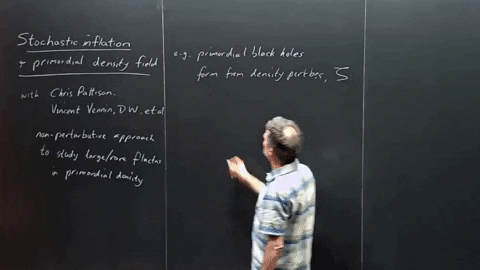 Stochastic inflation
+ primordial density field
with Chris Pattison,
Vincent Vennin, D.W., et al
non-perturbative approach
to study large/rare fluctns
in primordial density
e.g. primordial black holes
form from density pertbns, ζ